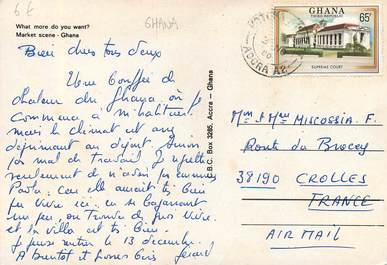 6 €
GHANA
What more do you want?
Market scene - Ghana
Bien chers tous deux
Une bouffée de
chaleur du Ghana où je
commence à m'habituer
mais le climat est
déprimant au début. Sinon
pas mal de travail. Je
seulement de n'avoir pu emmener
car elle aurait très bien
pu vivre ici. en se
un peu, on trouve de quoi vivre.
et la villa est très bien.
Je pense rentrer le 13 décembre.
A Bientôt et bonnes Gérard
B.B.C. Box 3285, Accra - Ghana
GHANA
THIRD REPUBLIC
65p
SUPREME COURT
ACCRA
Mr et Mme MISCOSSIA F.
Route du Brocey
38190 CROLLES
FRANCE
AIR MAIL